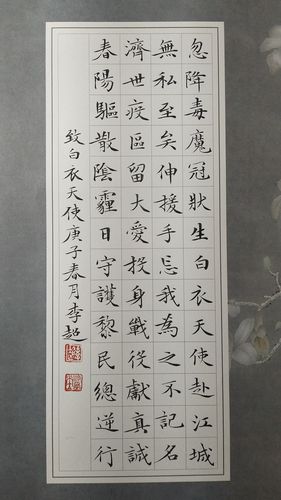 忽降毒魔冠狀生白衣天使赴江城
無私至矣伸援手忘我為之不記名
濟世疫區留大愛投身戰役獻真誠
春陽驅散陰霾日守護黎民總逆行
致白衣天使庚子春月李超